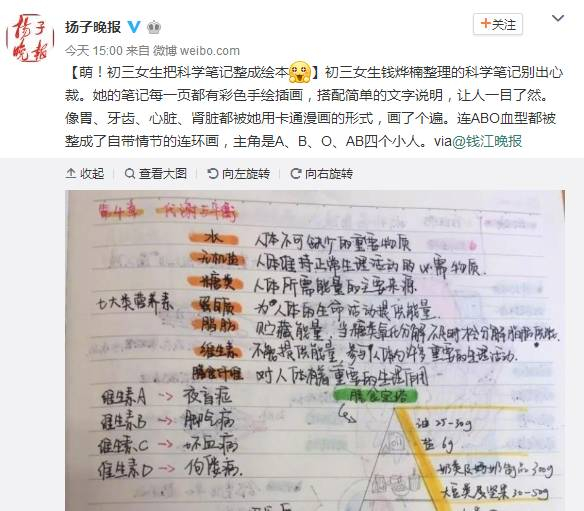 扬子晚报
扬子晚报
+关注
今天 15:00 来自 微博 weibo.com
【萌！初三女生把科学笔记整成绘本】初三女生钱烨楠整理的科学笔记别出心
裁。她的笔记每一页都有彩色手绘插画，搭配简单的文字说明，让人一目了然。
像胃、牙齿、心脏、肾脏都被她用卡通漫画的形式，画了个遍。连ABO血型都被
整成了自带情节的连环画，主角是A、B、O、AB四个小人。via@钱江晚报
收起 查看大图 向左旋转 向右旋转
第4章 代谢与平衡
水 人体不可缺少的重要物质
无机盐 人体维持正常生理活动的必需物质.
糖类 人体所需能量的主要来源.
七大类营养素 蛋白质 为人体的生命活动提供能量.
脂肪 贮藏能量,当糖类氧化分解不足时才分解脂肪
维生素 不能提供能量,参与人体内许多重要的生理活动.
膳食纤维 对人体有着重要的生理作用
膳食宝塔
维生素A → 夜盲症
维生素B → 脚气病
维生素C → 坏血病
维生素D → 佝偻病.
油 25-30g
盐 6g
奶类及奶制品 300g
大豆类及坚果 30-50g